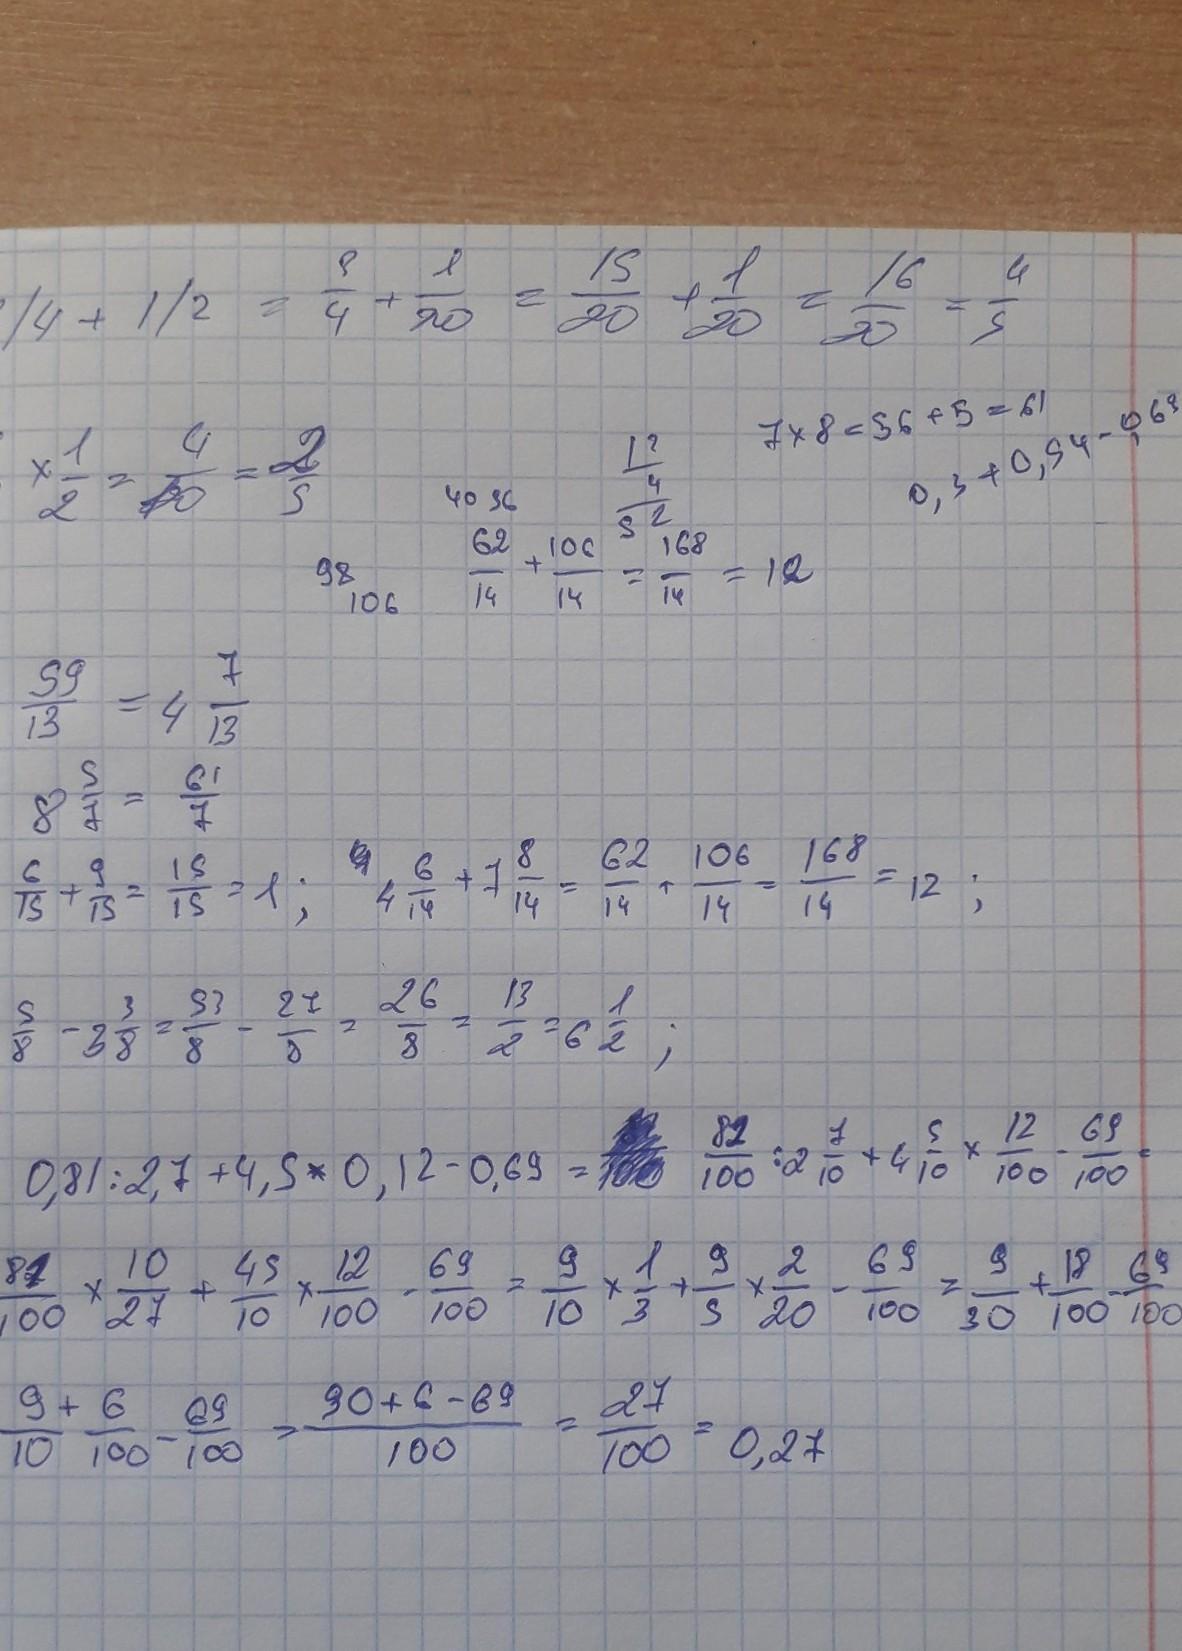 /4 + 1/2 = 3/4 + 1/20 = 15/20 + 1/20 = 16/20 = 4/5
7 x 8 = 56 + 5 = 61
0,3 + 0,54 - 0,69
x 1/2 = 4/10 = 2/5
40 56
98
106
62/14 + 106/14 = 168/14 = 12
59/13 = 4 7/13
8 5/7 = 61/7
6/15 + 9/15 = 15/15 = 1 ; 4 6/14 + 7 8/14 = 62/14 + 106/14 = 168/14 = 12 ;
5/8 - 3 3/8 = 53/8 - 27/8 = 26/8 = 13/2 = 6 1/2 ;
0,81 : 2,7 + 4,5 * 0,12 - 0,69 = 81/100 : 2 7/10 + 4 5/10 x 12/100 - 69/100 =
81/100 x 10/27 + 45/10 x 12/100 - 69/100 = 9/10 x 1/3 + 9/5 x 2/20 - 69/100 = 9/30 + 18/100 - 69/100
9/10 + 6/100 - 69/100 = 90+6-69/100 = 27/100 = 0,27